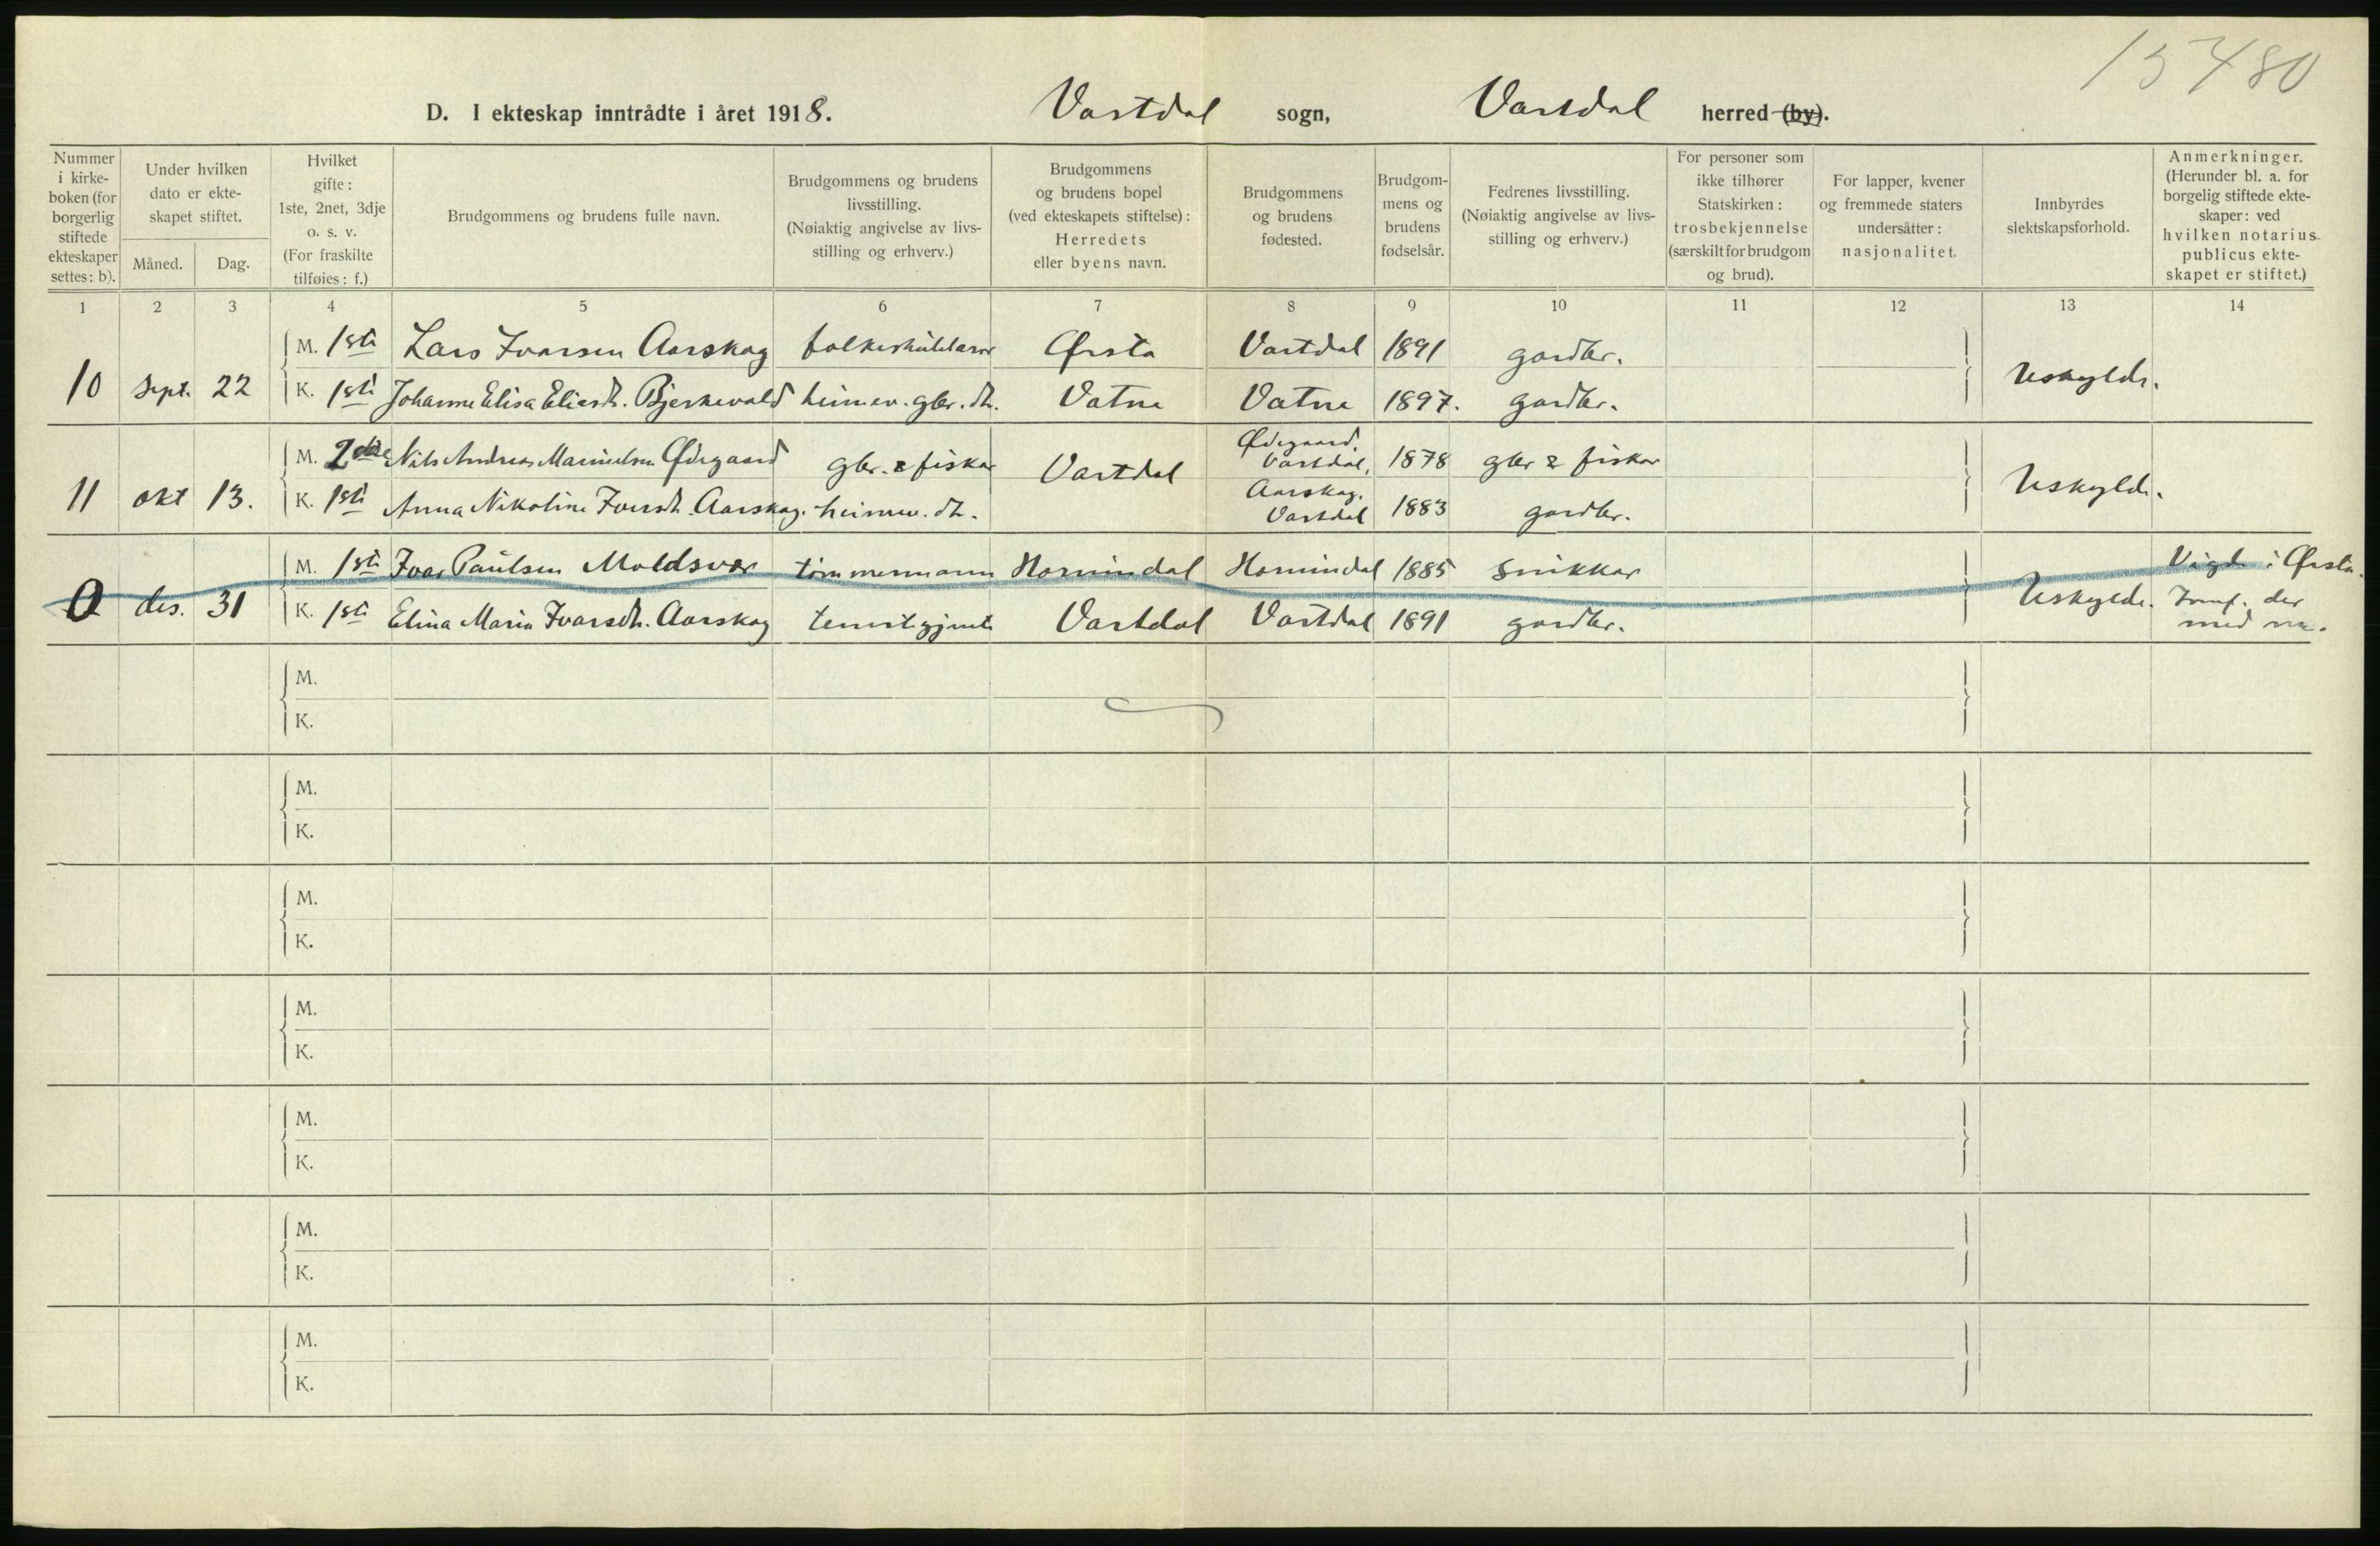 15480
D. I ekteskap inntrådte i året 1918. Vartdal sogn, Vartdal herred (by).
Nummer i kirkeboken (for borgerlig stiftede ekteskaper settes: b).
Under hvilken dato er ekteskapet stiftet.
Måned. Dag.
Hvilket gifte: 1ste, 2net, 3dje o. s. v. (For fraskilte tilføies: f.)
Brudgommens og brudens fulle navn.
Brudgommens og brudens livsstilling. (Nøiaktig angivelse av livsstilling og erhverv.)
Brudgommens og brudens bopel (ved ekteskapets stiftelse): Herredets eller byens navn.
Brudgommens og brudens fødested.
Brudgommens og brudens fødselsår.
Fedrenes livsstilling. (Nøiaktig angivelse av livsstilling og erhverv.)
For personer som ikke tilhører Statskirken: trosbekjennelse (særskilt for brudgom og brud).
For lapper, kvener og fremmede staters undersåtter: nasjonalitet.
Innbyrdes slektskapsforhold.
Anmerkninger. (Herunder bl. a. for borgelig stiftede ekteskaper: ved hvilken notarius publicus ekteskapet er stiftet.)
1 2 3 4 5 6 7 8 9 10 11 12 13 14
M. 1ste Lars Ivarsen Aarskog folkeskulelærar Ørsta Vartdal 1891 gardbr.
10 Sept. 22 K. 1ste Johanne Elisa Eliasdt. Bjerkevold heimev. gbr. dt. Vatne Vatne 1897. gardbr. Uskylde.
M. 2dre Nils Andreas Ødegaard gbr. & fiskar Vartdal Ødegaard, Vartdal, 1878 gbr & fiskar
11 okt 13. K. 1ste Anna Nikoline Iversdt. Aarskog. heimev. dt. Aarskog. Vartdal 1883 gardbr. Uskylde.
M. 1ste Ivar Paulsen Moldsvor tømmermann Hornindal Hornindal 1885 snikkar Vigde i Ørsta.
0 des. 31 K. 1ste Elina Maria Ivarsdt. Aarskog tenestgjente Vartdal Vartdal 1891 gardbr. Uskylde. der
med nr.
M.
K.
M.
K.
M.
K.
M.
K.
M.
K.
M.
K.
M.
K.